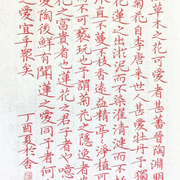 草木之花可愛者甚蕃晉陶淵明
菊花自李唐來世人甚愛牡丹予獨
蓮之出淤泥而不染濯清漣而不
直不蔓不枝香遠益清亭淨植可
不可褻玩焉予謂菊花之隱逸者
花富貴者也蓮花之君子者也噫
愛陶後鮮有聞蓮之愛同予者何
之愛宜乎眾矣
丁酉夏於舍